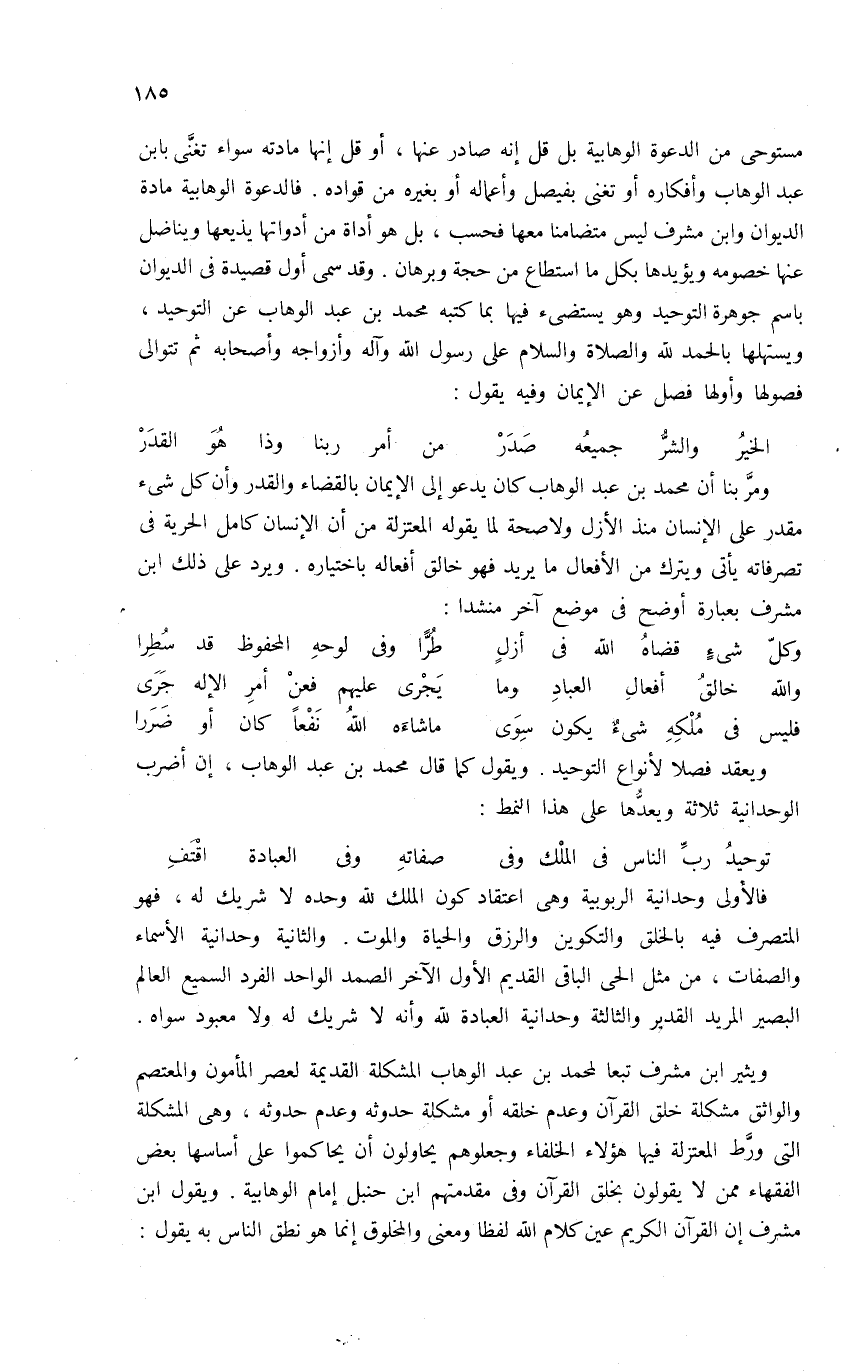 ١٨٥
مستوحى من الدعوة الوهابية بل قل إنه صادر عنها ، أو قل إنها مادته سواء تغنَّى بابن
عبد الوهاب وأفكاره أو تغنى بفيصل وأعماله أو بغيره من قواده . فالدعوة الوهابية مادة
الديوان وابن مشرف ليس متضامنا معها فحسب ، بل هو أداة من أدواتها يذيعها ويناضل
عنها خصومه ويؤيدها بكل ما استطاع من حجة وبرهان . وقد سمى أول قصيدة فى الديوان
باسم جوهرة التوحيد وهو يستضىء فيها بما كتبه محمد بن عبد الوهاب عن التوحيد ،
ويستهلها بالحمد لله والصلاة والسلام على رسول الله وآله وأزواجه وأصحابه ثم تتوالى
فصولها وأولها فصل عن الإيمان وفيه يقول :
الخيرُ والشرُّ جميعُه صَدَرْ من أمر ربنا وذا هُوَ القدَرْ
ومرَّ بنا أن محمد بن عبد الوهاب كان يدعو إلى الإيمان بالقضاء والقدر وأن كل شىء
مقدر على الإنسان منذ الأزل ولاصحة لما يقوله المعتزلة من أن الإنسان كامل الحرية فى
تصرفاته يأتى ويترك من الأفعال ما يريد فهو خالق أفعاله باختياره . ويرد على ذلك ابن
مشرف بعبارة أوضح فى موضع آخر منشدا :
وكلّ شىءٍ قضاهُ الله فى أزلٍ طُرًّا وفى لوحهِ المحفوظ قد سُطِرا
والله خالقُ أفعالِ العبادِ وما يَجْرى عليهم فعنْ أمرِ الإله جَرَى
فليس فى مُلْكِهِ شىءٌ يكون سِوَى ماشاءَه اللهُ نَفْعاً كان أو ضَرَرا
ويعقد فصلا لأنواع التوحيد . ويقول كما قال محمد بن عبد الوهاب ، إن أضرب
الوحدانية ثلاثة ويعدُّها على هذا النمط :
توحيدُ ربِّ الناس فى الملْك وفى صفاتهِ وفى العبادة اقْتَفِ
فالأولى وحدانية الربوبية وهى اعتقاد كون الملك لله وحده لا شريك له ، فهو
المتصرف فيه بالخلق والتكوين والرزق والحياة والموت . والثانية وحدانية الأسماء
والصفات ، من مثل الحى الباقى القديم الأول الآخر الصمد الواحد الفرد السميع العالم
البصير المريد القدير والثالثة وحدانية العبادة لله وأنه لا شريك له ولا معبود سواه .
ويثير ابن مشرف تبعا لمحمد بن عبد الوهاب المشكلة القديمة لعصر المأمون والمعتصم
والواثق مشكلة خلق القرآن وعدم خلقه أو مشكلة حدوثه وعدم حدوثه ، وهى المشكلة
التى ورَّط المعتزلة فيها هؤلاء الخلفاء وجعلوهم يحاولون أن يحاكموا على أساسها بعض
الفقهاء ممن لا يقولون بخلق القرآن وفى مقدمتهم ابن حنبل إمام الوهابية . ويقول ابن
مشرف إن القرآن الكريم عين كلام الله لفظا ومعنى والمخلوق إنما هو نطق الناس به يقول :